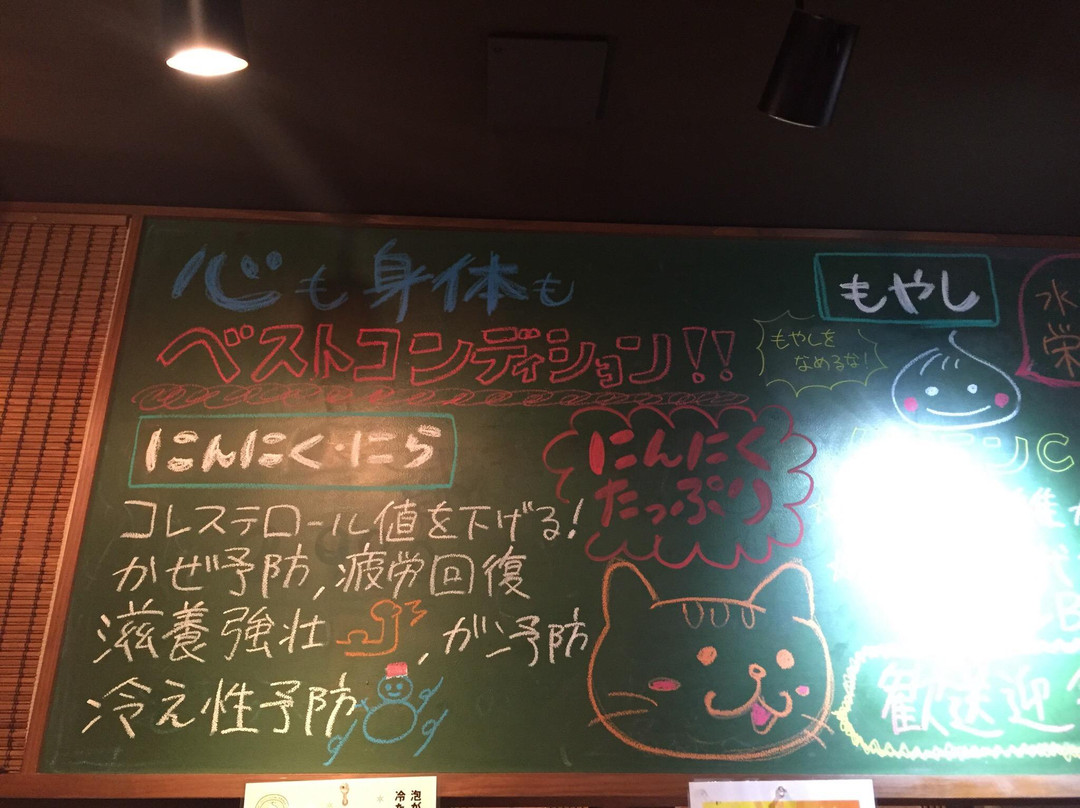 心も身体も
ベストコンディション!!
にんにく・にら
コレステロール値を下げる!
かぜ予防,疲労回復
滋養強壮,ガン予防
冷え性予防
にんにく
たっぷり
もやし
もやしを
なめるな!
水
栄
ンC
歓送迎
泡が
冷た